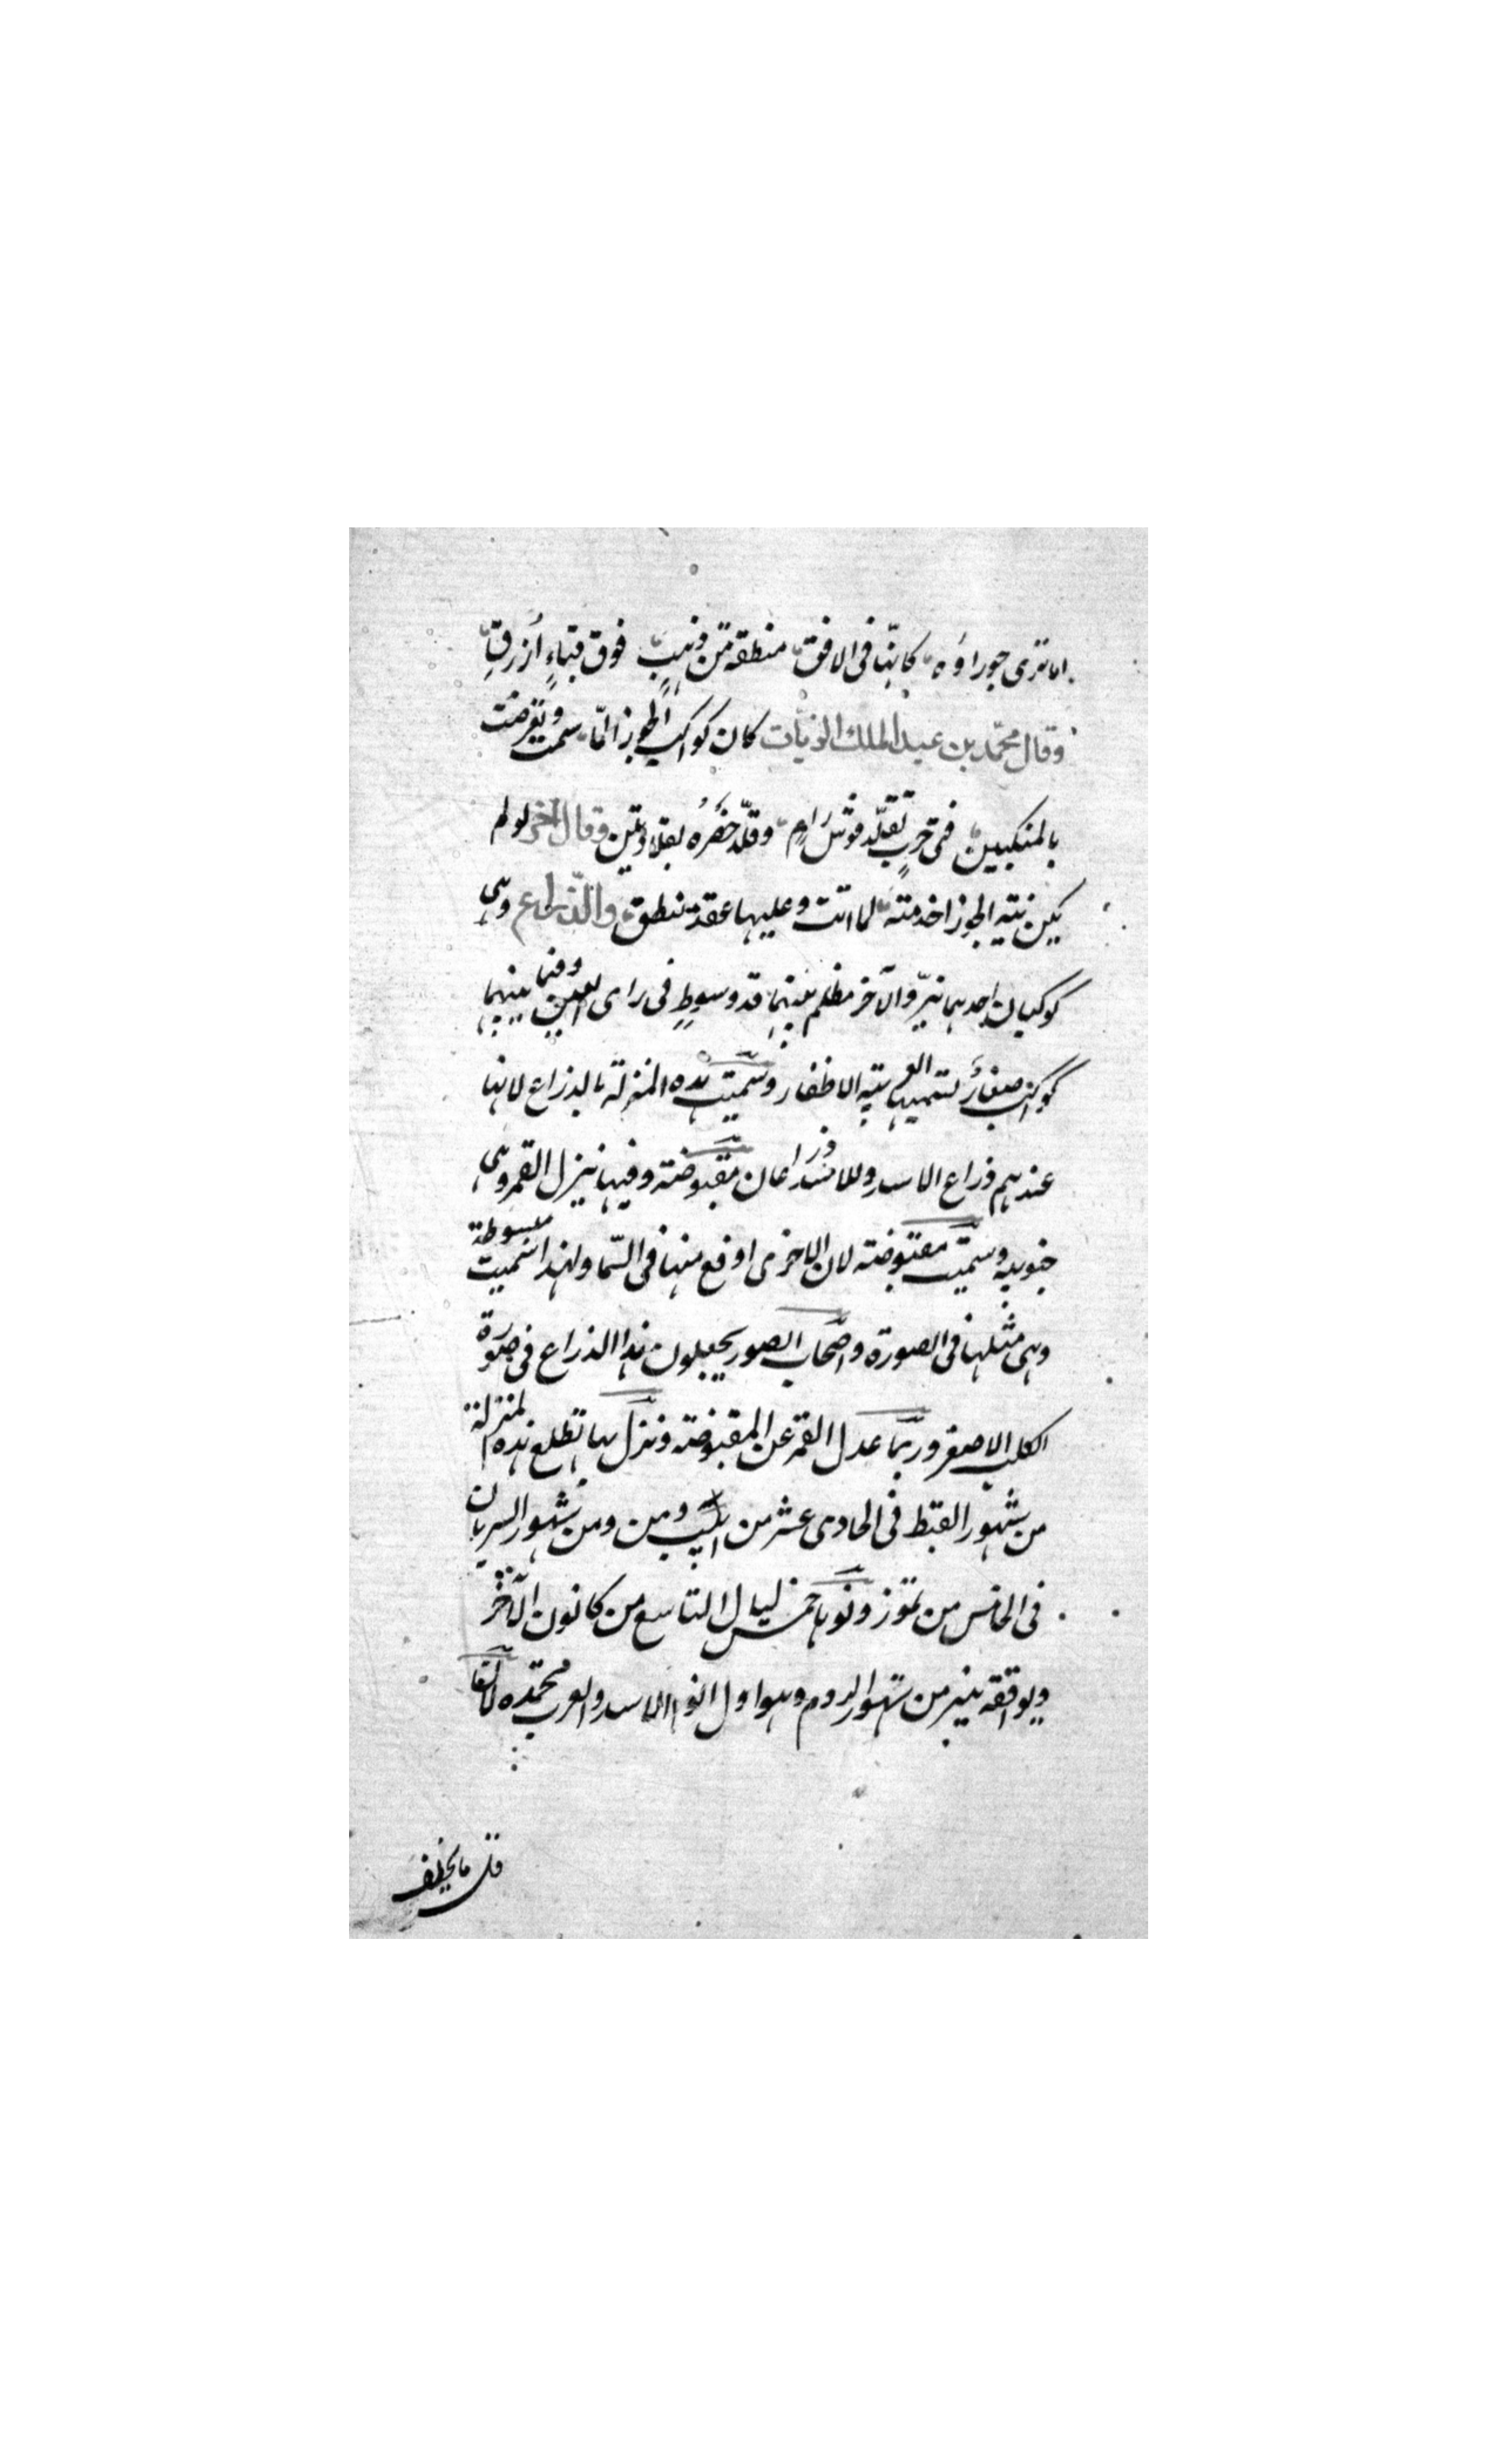 اما ترى جوزاؤه كانّها فى الافق منطقة من ذهب فوق قباءٍ أزرق
وقال محمّد بن عبد الملك الزيات كان كواكب الجوزا لمّا سمت وتعرضت
بالمنكبين فتى حربٍ تقلّد قوس رامٍ وقلّد خصره بقلادتين وقال آخر لو لم
يكن نية الجوزا خدمته لما اتت وعليها عقد منتطق والذراع وهى
كوكبان احدهما نيّر والآخر مظلم بينهما قد وسوطٍ فى راى العين وفيما بينهما
كواكب صغارٌ تسميها العرب الاظفار وسمّيت هذه المنزلة بالذراع لانها
عندهم ذراع الاسد وللاسد ذراعان مقبوضة وفيها ينزل القمر وهى
جنوبيه وسمّيت مقبوضته لان الاخرى ارفع منها فى السّما ولهذا سميت مبسوطة
وهى مثلها فى الصورة واصحاب الصور يجعلون هذا الذراع فى صورة
الكلب الاصغر وربّما عدل القمر عن المقبوضة ونزل بها تطلع هذه المنزلة
من شهور القبط فى الحادى عشر من ابيب ومن ومن شهور السريان
فى الخامس من تموز ونوها خمس ليال التاسع من كانون الآخر
ويوافقه ينير من شهور الروم وهو اول انوا الاسد والعرب تحمده لانها
قل ما يخلف